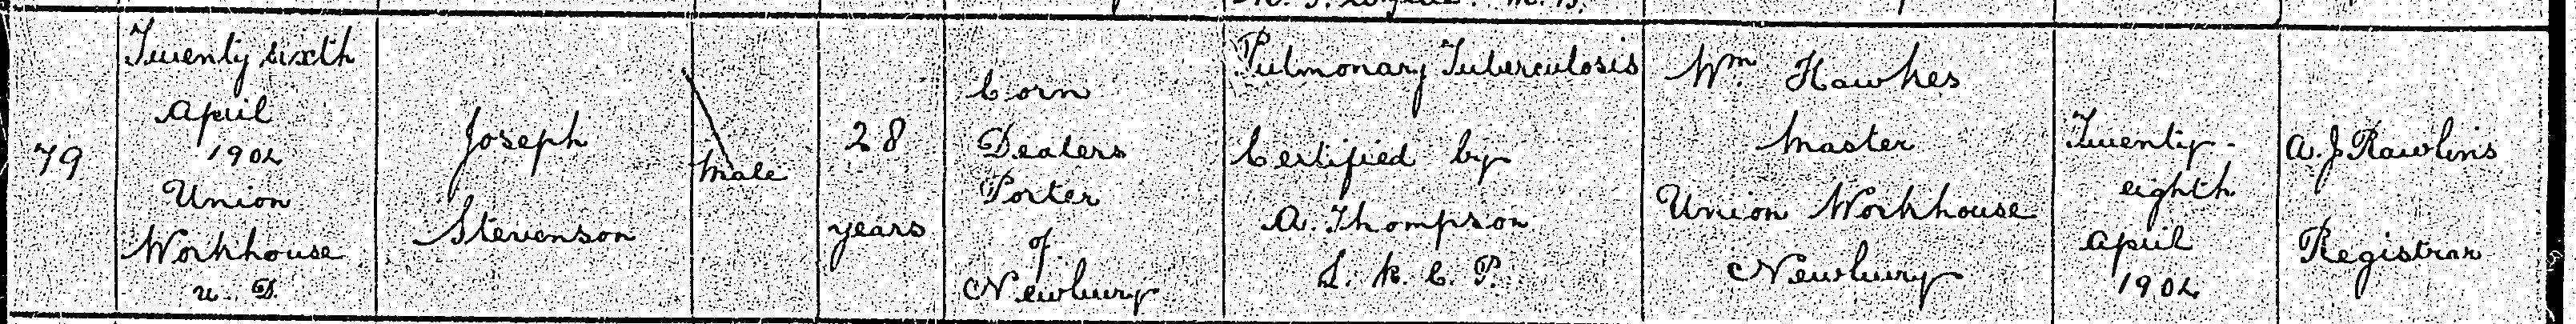 79
Twenty sixth
April
1902
Union
Workhouse
U. D.
Joseph
Stevenson
Male
28
years
Corn
Dealers
Porter
of
Newbury
Pulmonary Tuberculosis
Certified by
A. Thompson
L. R. C. P.
Wm Hawkes
Master
Union Workhouse
Newbury
Twenty-
eighth
April
1902
A. J. Rawlins
Registrar